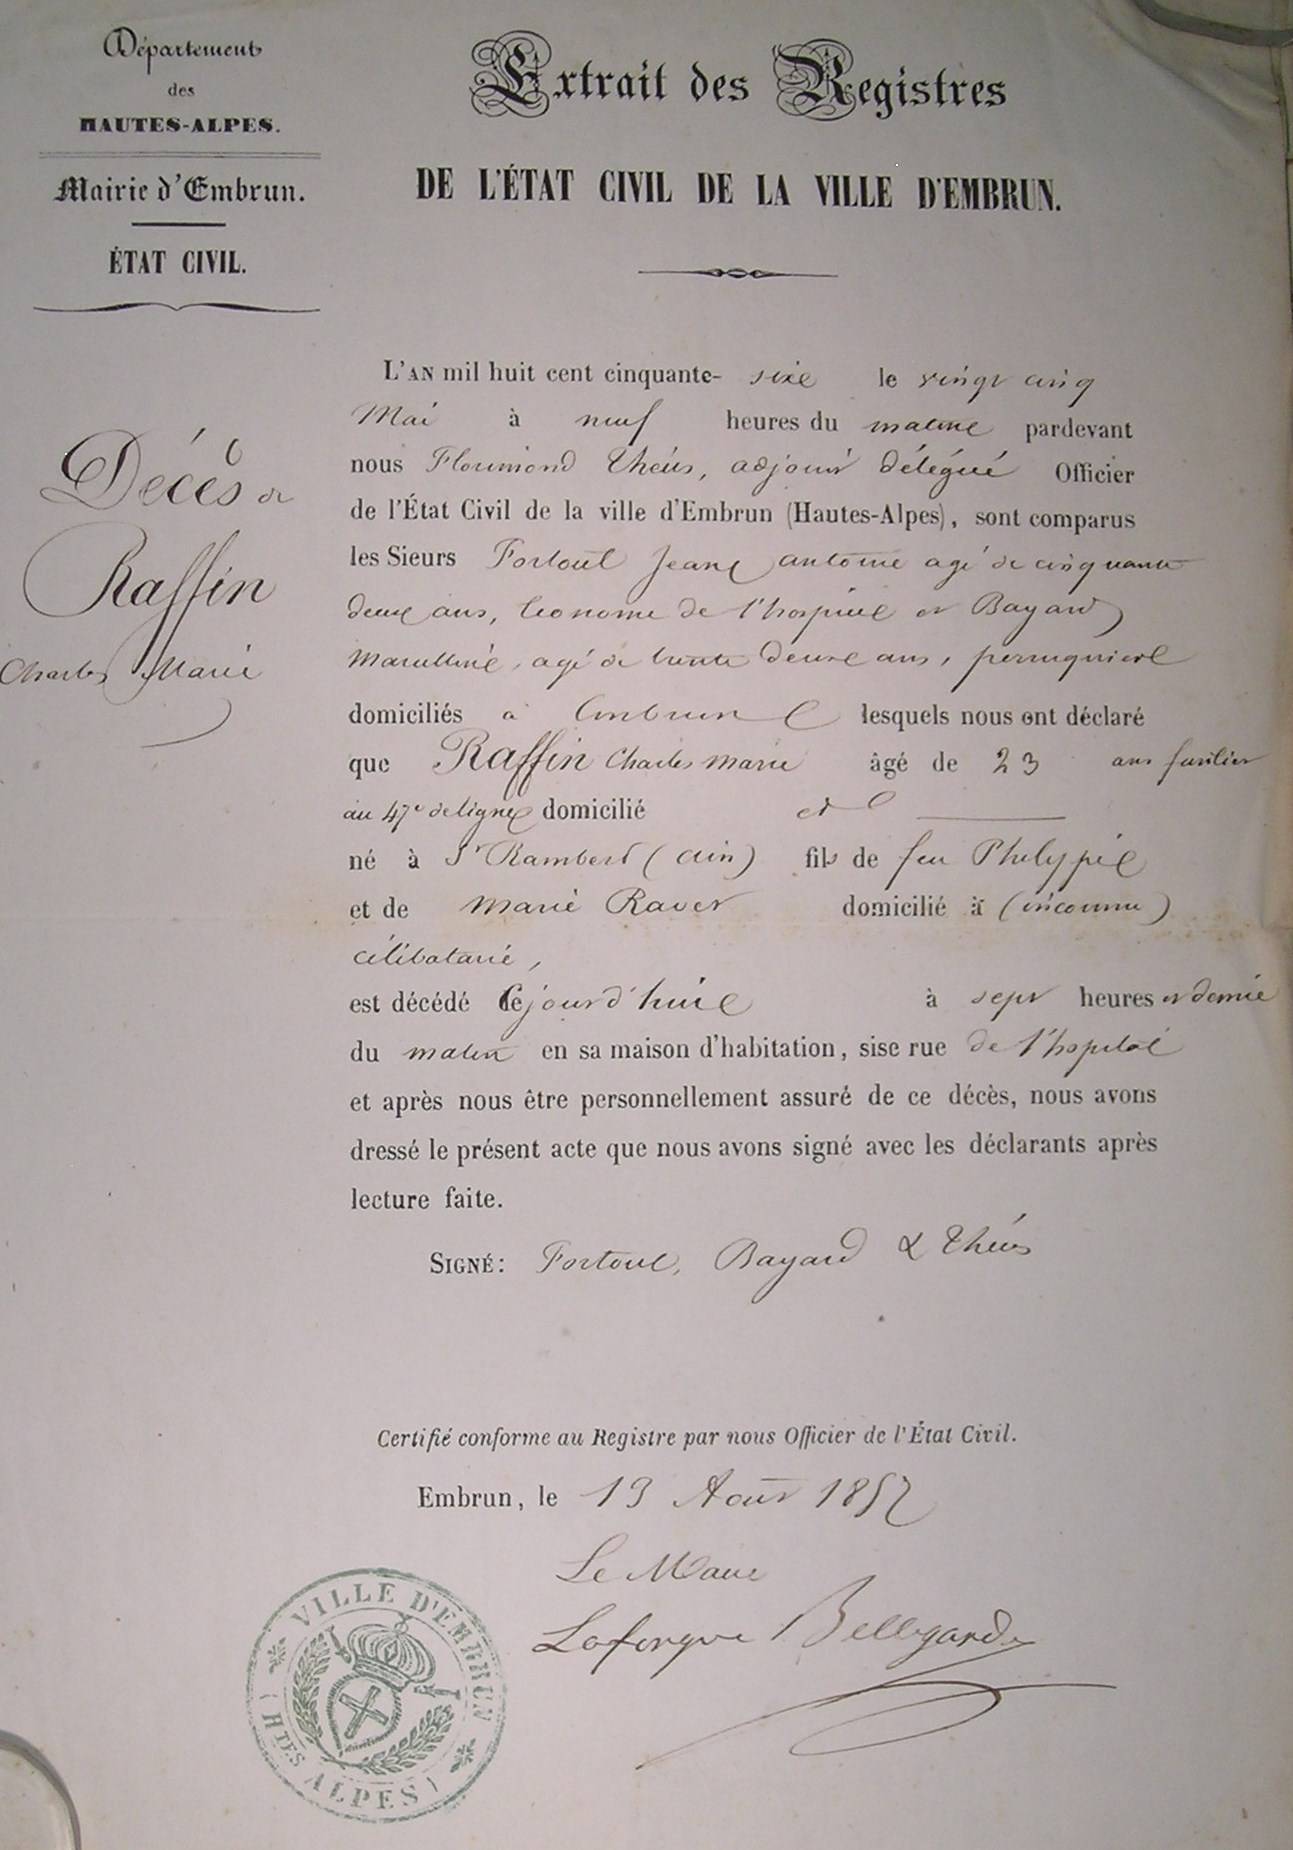 Département
des
HAUTES-ALPES.
Mairie d'Embrun.
ÉTAT CIVIL.
Extrait des Registres
DE L'ÉTAT CIVIL DE LA VILLE D'EMBRUN.
Décès de
Raffin
Charles Marie
L'AN mil huit cent cinquante- six le vingt cinq
Mai à neuf heures du matin pardevant
nous Florimond Théüs, adjoint délégué Officier
de l'État Civil de la ville d'Embrun (Hautes-Alpes), sont comparus
les Sieurs Fortoul Jean antoine agé de cinquante
deux ans, Econome de l'hospice et Bayard
Marcellin, agé de trente deux ans, perruquier
domiciliés à Embrun lesquels nous ont déclaré
que Raffin Charles Marie âgé de 23 ans fusilier
au 47e de ligne domicilié et
né à St Rambert (ain) fils de feu Philyppe
et de Marie Raver domicilié à (inconnu)
célibataire,
est décédé cejourd'hui à sept heures et demie
du matin en sa maison d'habitation, sise rue de l'hopital
et après nous être personnellement assuré de ce décès, nous avons
dressé le présent acte que nous avons signé avec les déclarants après
lecture faite.
SIGNÉ: Fortoul, Bayard & Théüs
Certifié conforme au Registre par nous Officier de l'État Civil.
Embrun, le 13 Août 1857
Le Maire
Laforgue Bellegarde
VILLE D'EMBRUN
(HTES ALPES)